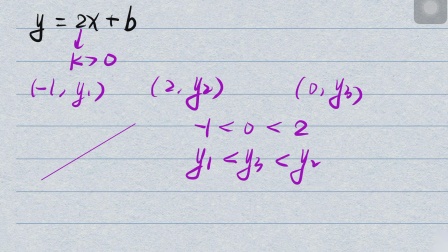 y = 2x + b
k > 0
(-1, y₁) (2, y₂) (0, y₃)
-1 < 0 < 2
y₁ < y₃ < y₂